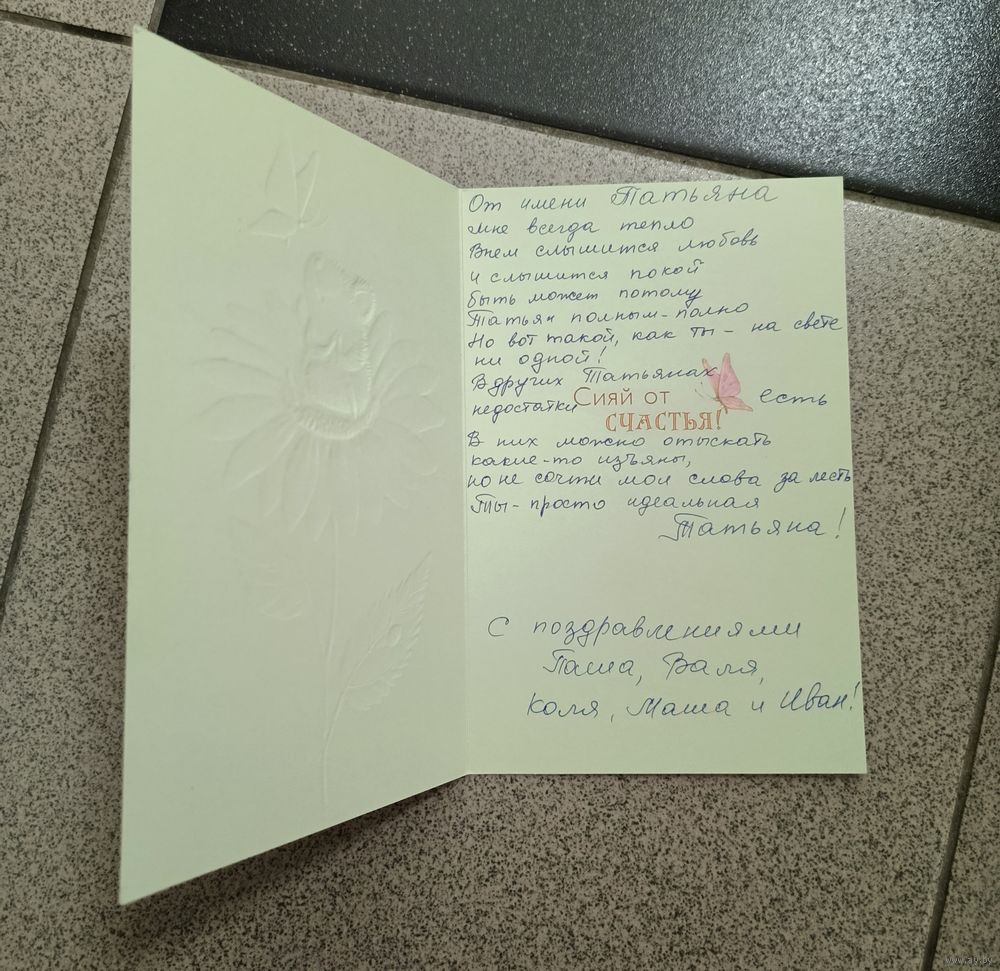 От имени Татьяна
мне всегда тепло
В нем слышится любовь
и слышится покой
быть может потому
Татьян полным-полно
Но вот такой, как ты - на свете
ни одной!
В других Татьянах
недостатки есть
Сияй от
СЧАСТЬЯ!
В них можно отыскать
какие-то изъяны,
но не сочти мои слова за лесть
Ты - просто идеальная
Татьяна!
С поздравлениями
Паша, Валя,
Коля, Маша и Иван!
www.ay.by